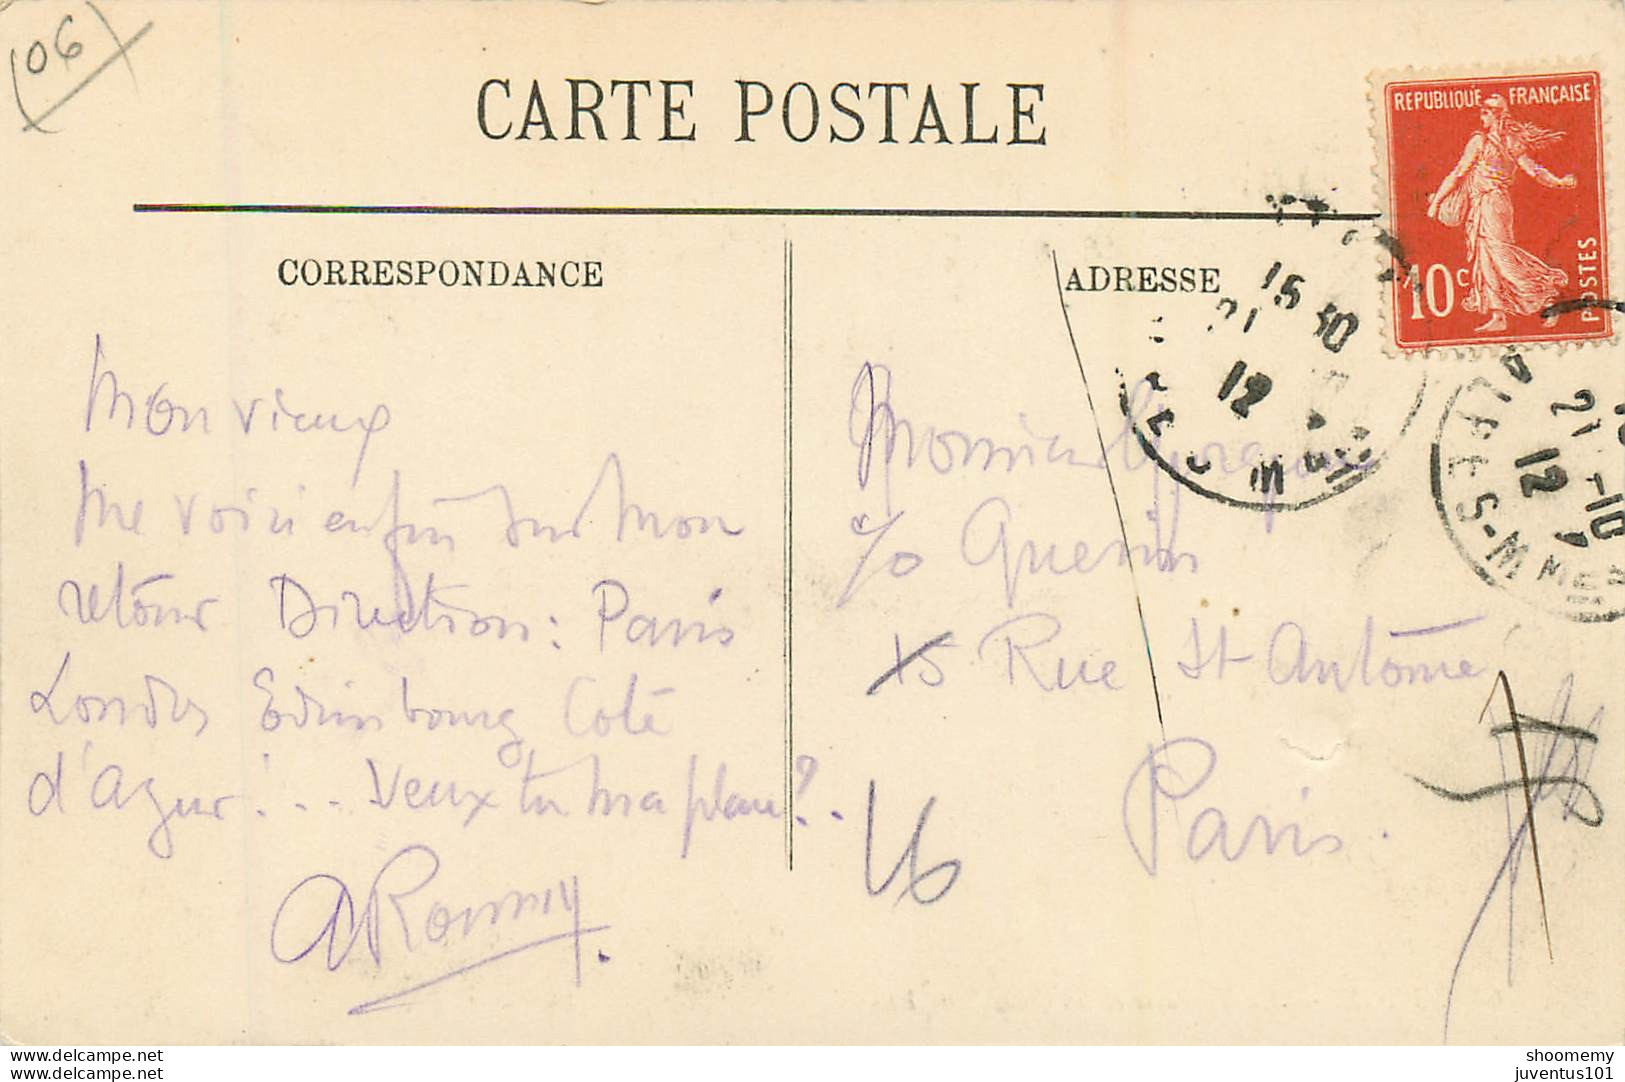 (06)
CARTE POSTALE
REPUBLIQUE FRANÇAISE
10 c
POSTES
CORRESPONDANCE
ADRESSE
Mon vieux
Me voici enfin sur mon
retour Direction : Paris
Londres Edimbourg Cote
d'Azur ! ... Veux tu ma place ? .
Monsieur
c/o Guerin
15 Rue St Antoine
Paris.
16
15 30
21
12
21 -10
12
ALPES-M
www.delcampe.net
www.delcampe.net
shoomemy
juventus101